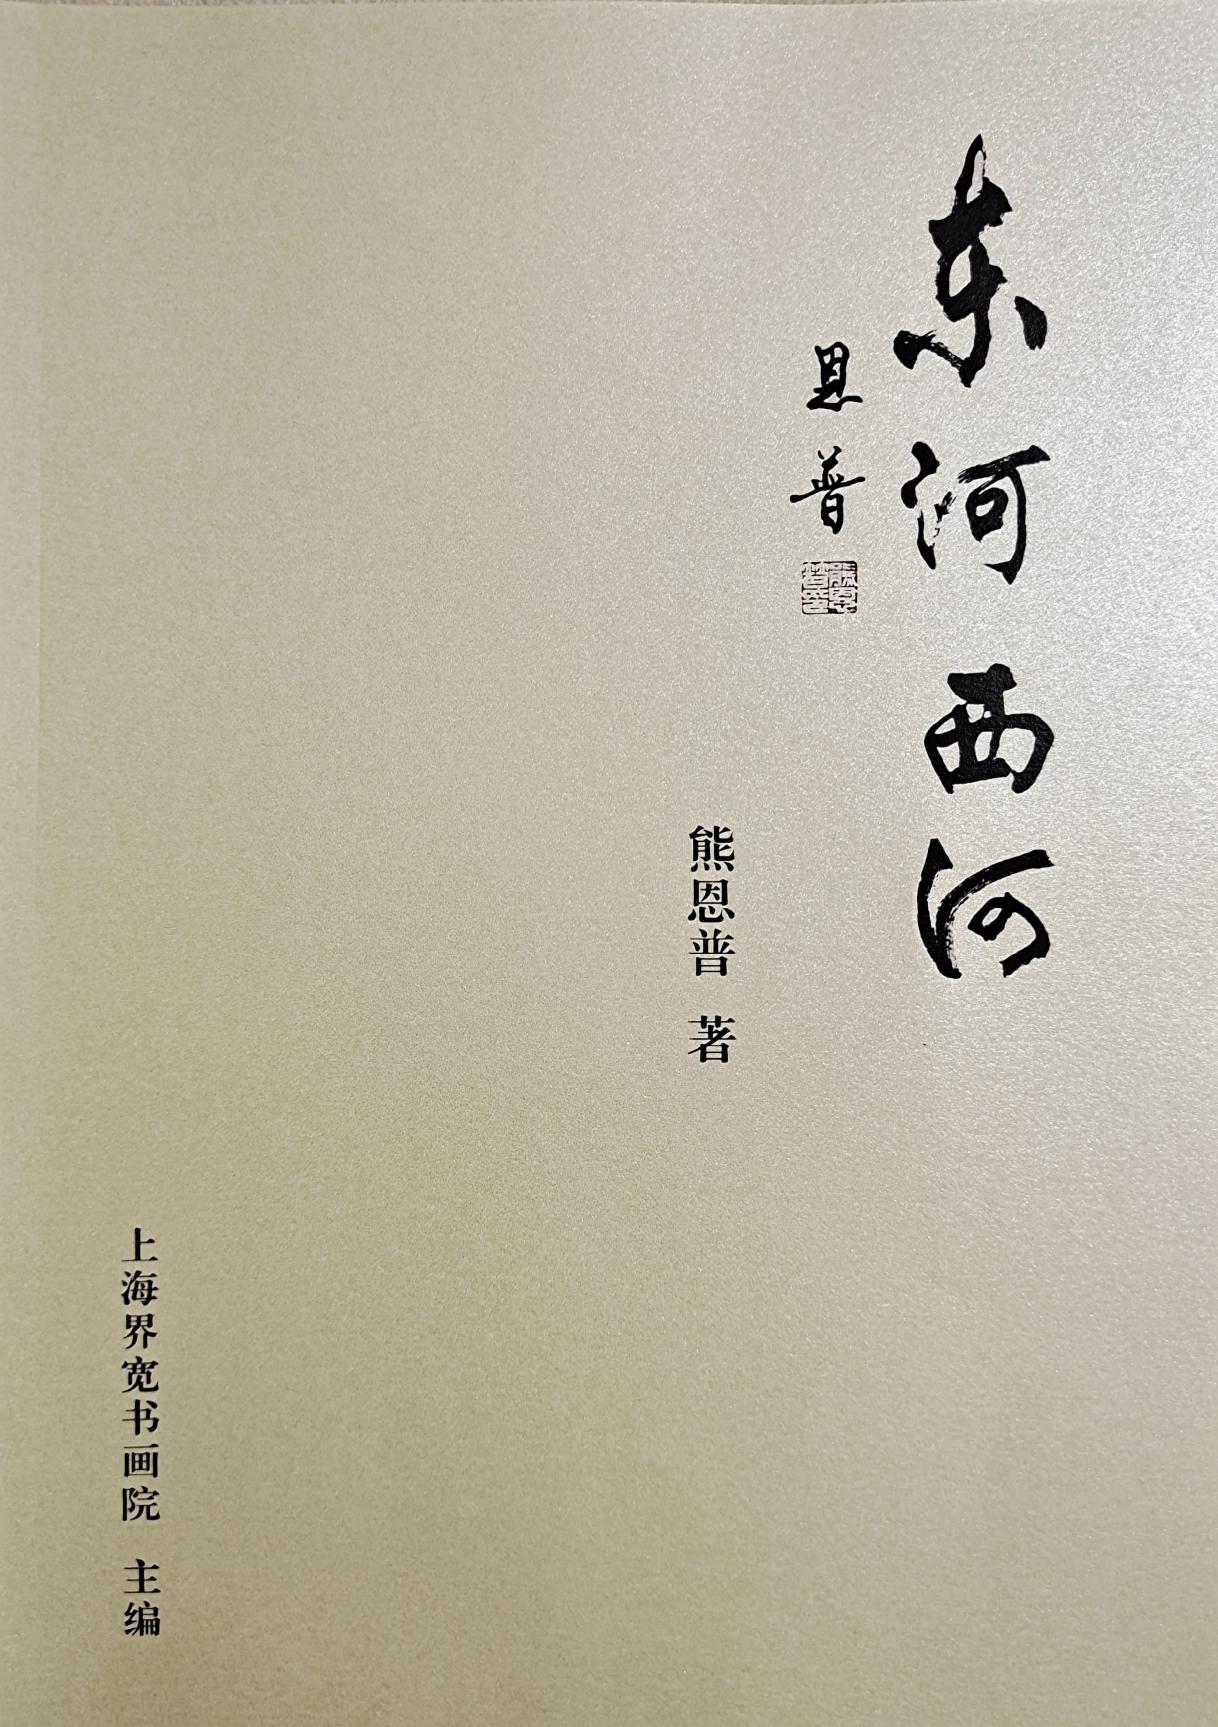 东河西河
恩普
熊恩普印
熊恩普 著
上海界宽书画院 主编